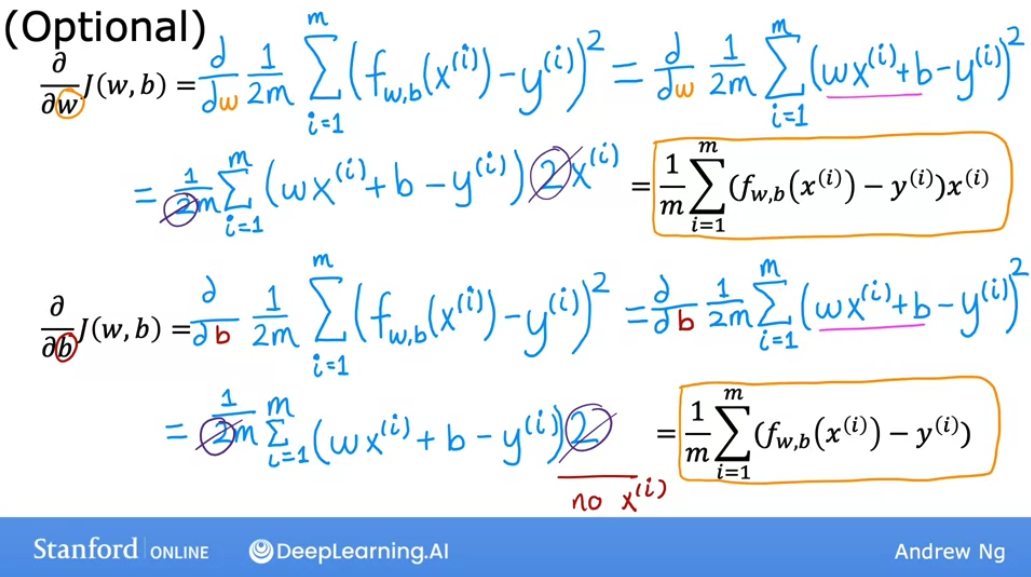 (Optional)
∂/∂w J(w, b) = d/dw 1/2m ∑_{i=1}^{m} (f_{w,b}(x^{(i)}) − y^{(i)})^2 = d/dw 1/2m ∑_{i=1}^{m} (wx^{(i)} + b − y^{(i)})^2
= 1/2m ∑_{i=1}^{m} (wx^{(i)} + b − y^{(i)}) 2x^{(i)} = 1/m ∑_{i=1}^{m} (f_{w,b}(x^{(i)}) − y^{(i)})x^{(i)}
∂/∂b J(w, b) = ∂/∂b 1/2m ∑_{i=1}^{m} (f_{w,b}(x^{(i)}) − y^{(i)})^2 = ∂/∂b 1/2m ∑_{i=1}^{m} (wx^{(i)} + b − y^{(i)})^2
= 1/2m ∑_{i=1}^{m} (wx^{(i)} + b − y^{(i)}) 2 = 1/m ∑_{i=1}^{m} (f_{w,b}(x^{(i)}) − y^{(i)})
no x^{(i)}
Stanford ONLINE DeepLearning.AI Andrew Ng